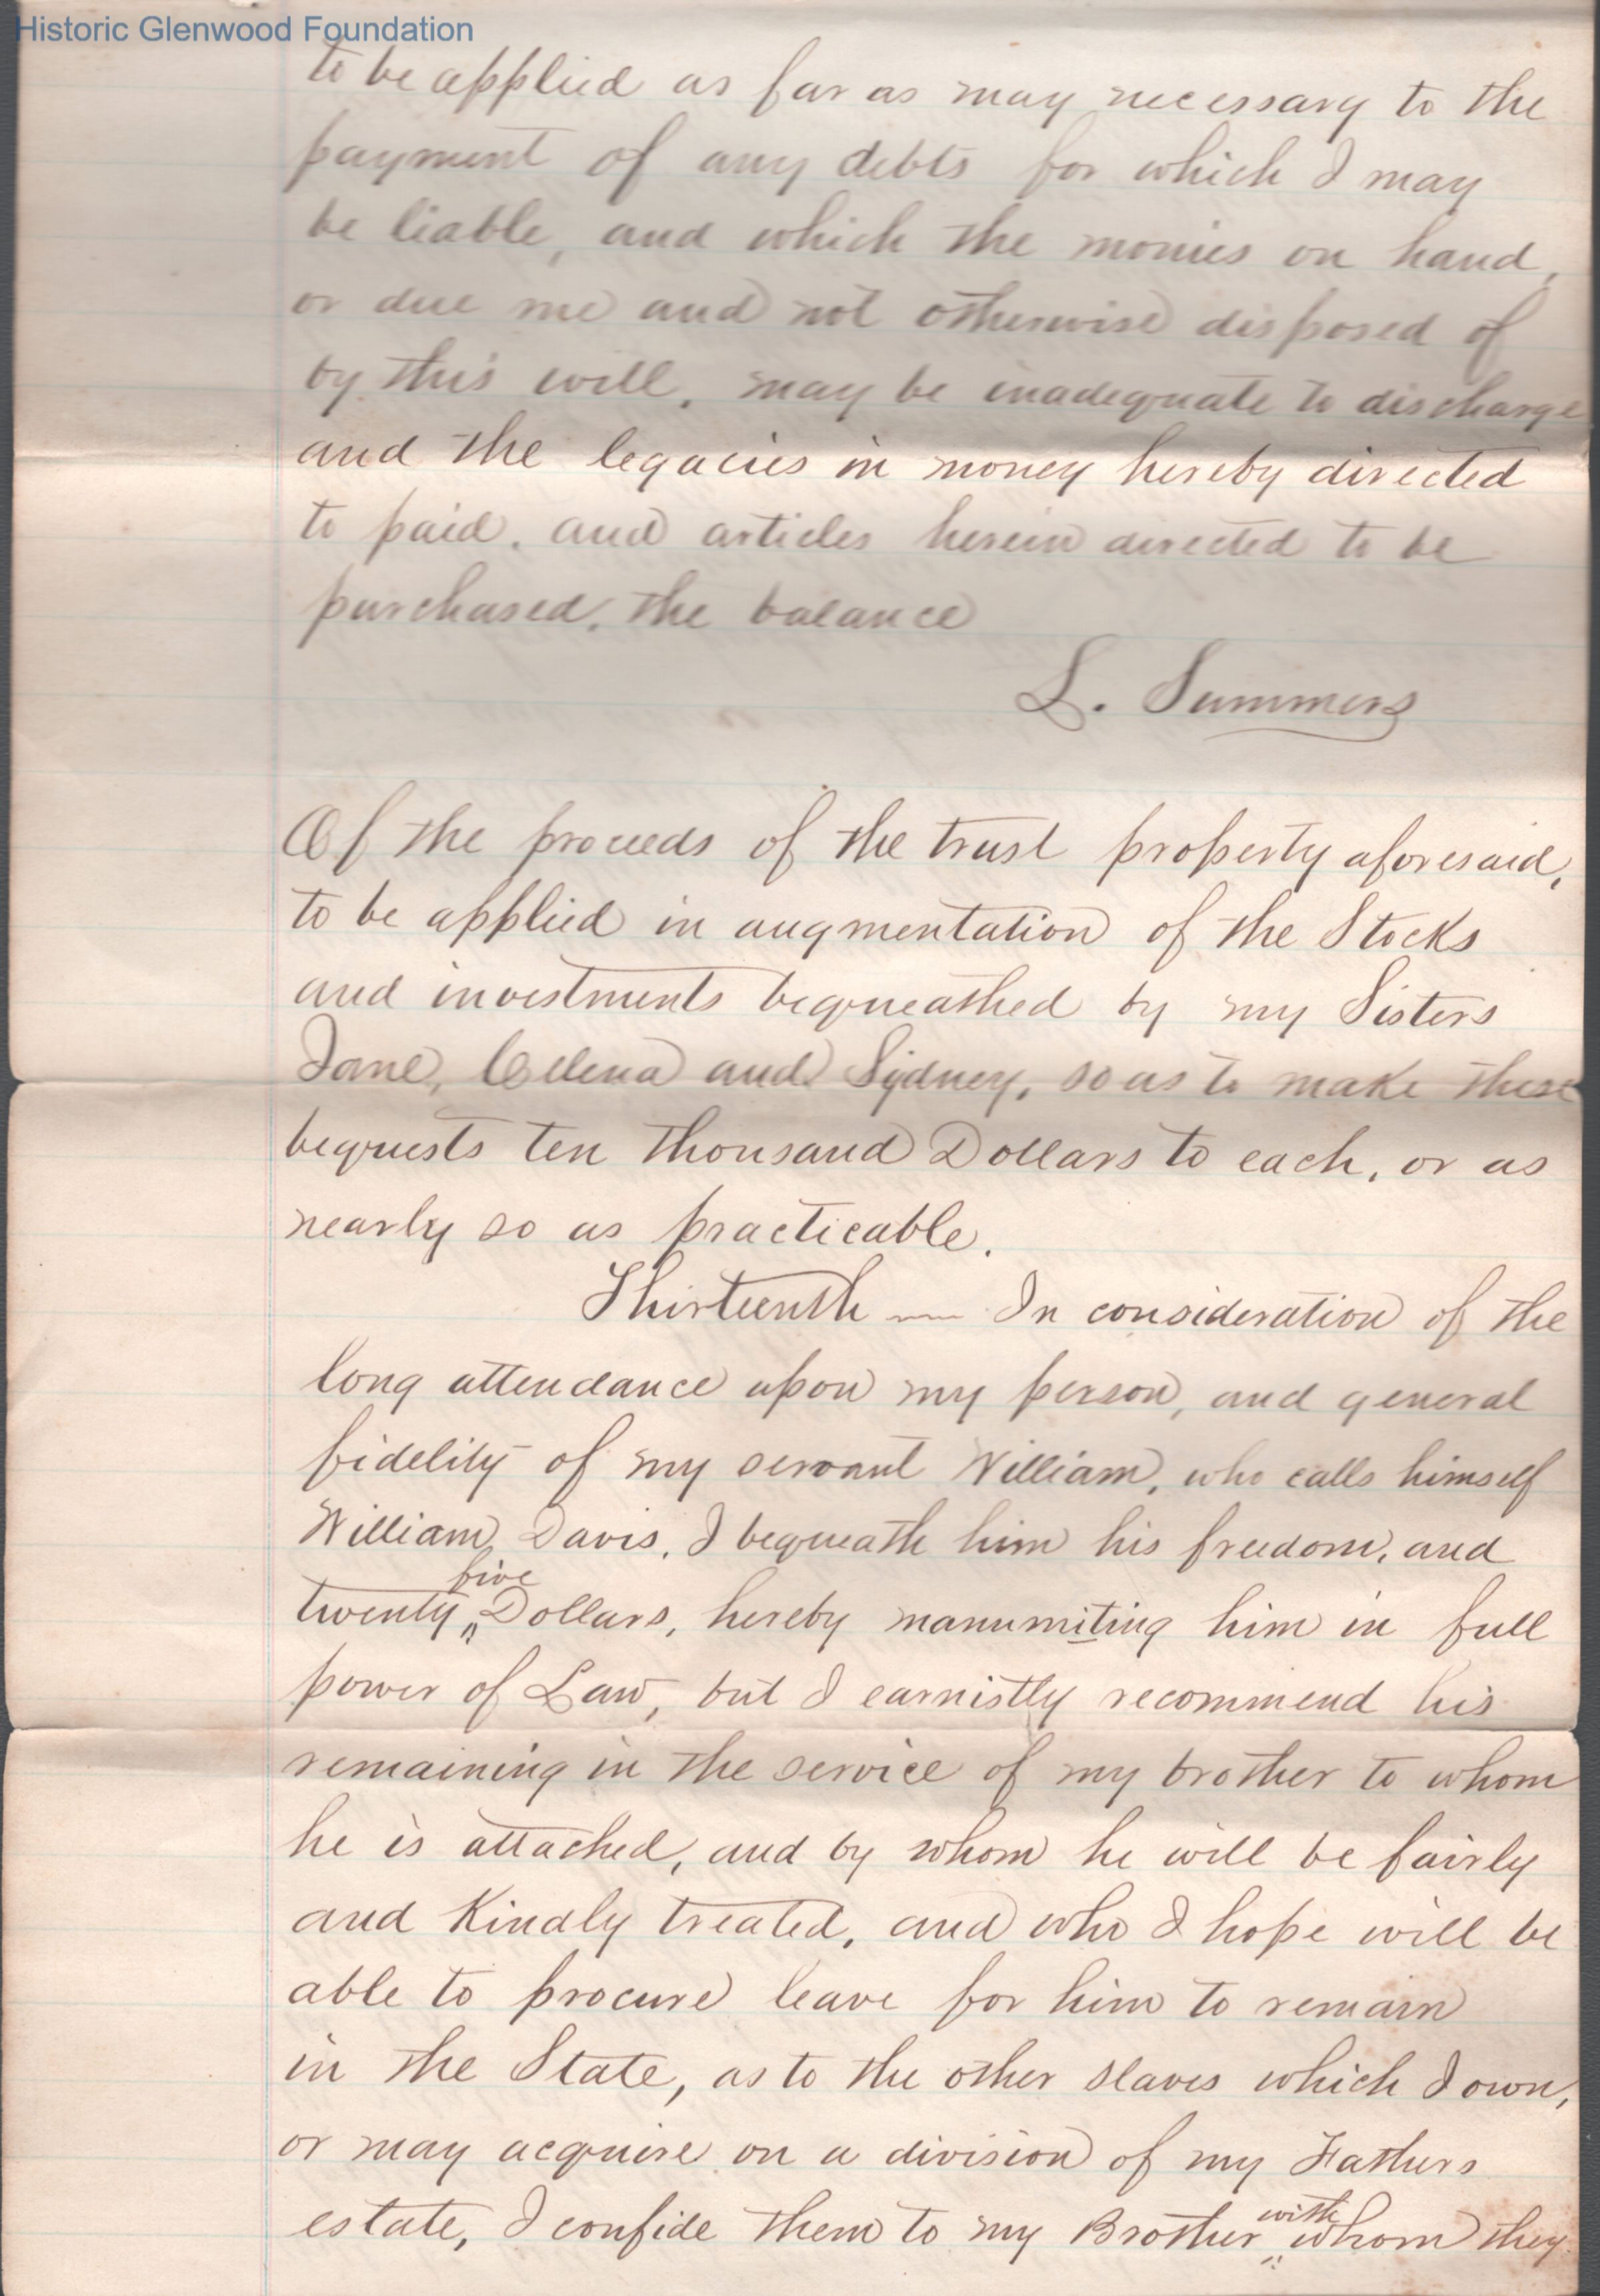 Historic Glenwood Foundation
to be applied as far as may necessary to the
payment of any debts for which I may
be liable, and which the monies on hand,
or due me and not otherwise disposed of
by this will, may be inadequate to discharge
and the legacies in money hereby directed
to paid, and articles herein directed to be
purchased, the balance
L. Summers
Of the proceeds of the trust property aforesaid,
to be applied in augmentation of the Stocks
and investments bequeathed by my Sisters
Jane, Celena and Sydney, so as to make these
bequests ten thousand Dollars to each, or as
nearly so as practicable.
Thirteenth — In consideration of the
long attendance upon my person, and general
fidelity of my servant William, who calls himself
William Davis, I bequeath him his freedom, and
five
twenty " Dollars, hereby manumiting him in full
power of Law, but I earnistly recommend his
remaining in the service of my brother to whom
he is attached, and by whom he will be fairly
and Kindly treated, and who I hope will be
able to procure leave for him to remain
in the State, as to the other slaves which I own,
or may acquire on a division of my Fathers
with
estate, I confide them to my Brother " whom they